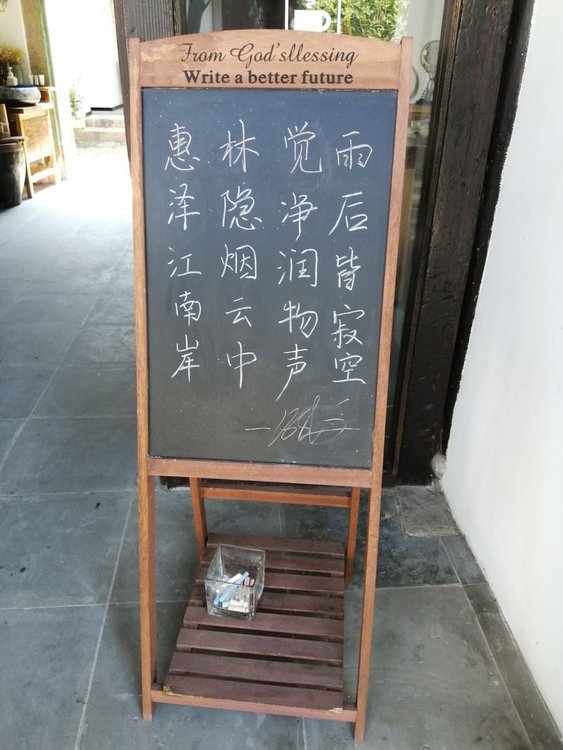 From God'sllessing
Write a better future
雨后皆寂空
觉净润物声
林隐烟云中
惠泽江南岸